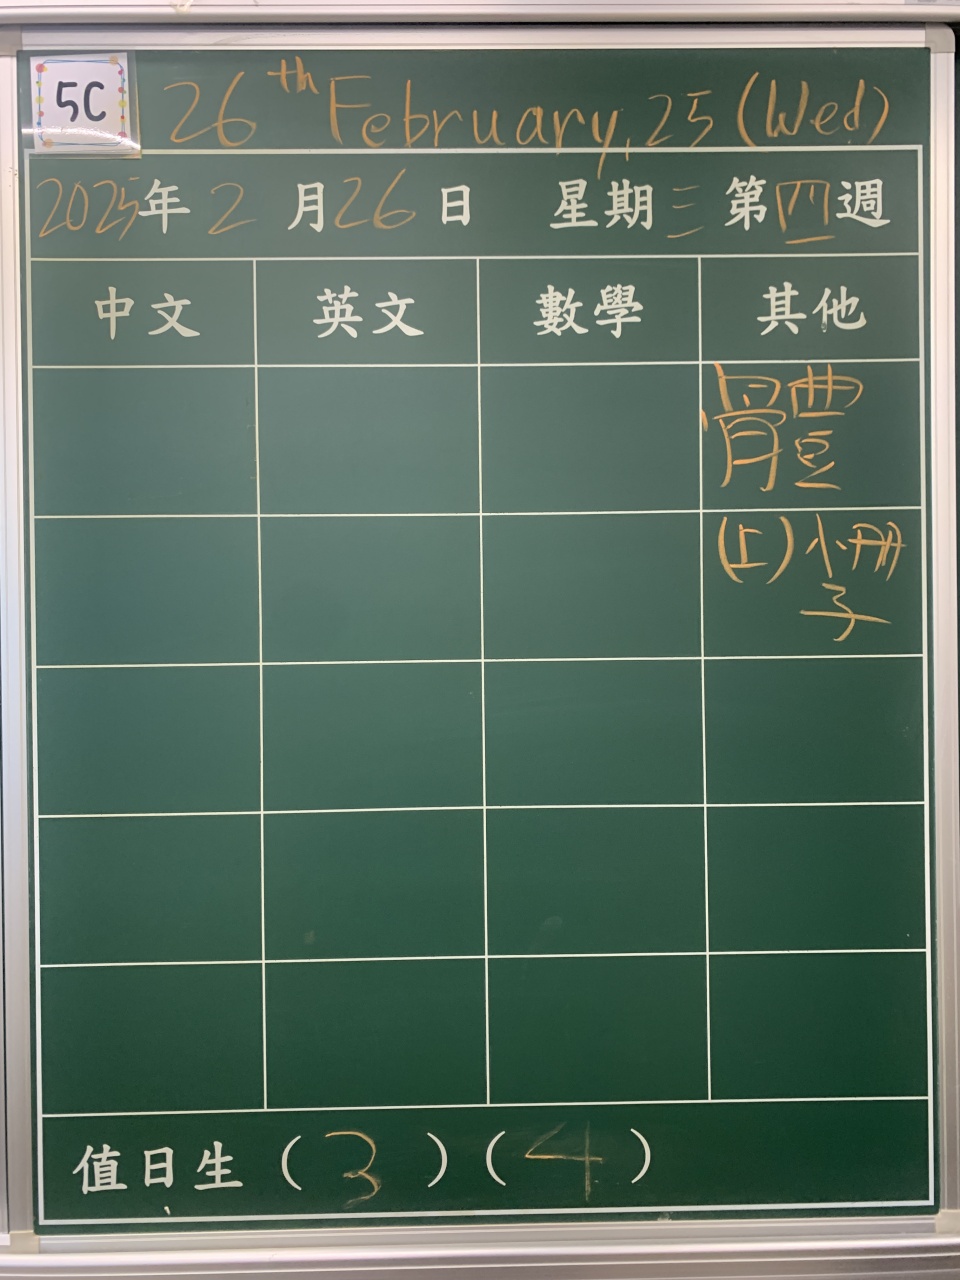 5C
26th February, 25 (Wed)
2025年2月26日 星期三 第四週
中文 英文 數學 其他
體
(上)小冊
子
值日生(3)(4)